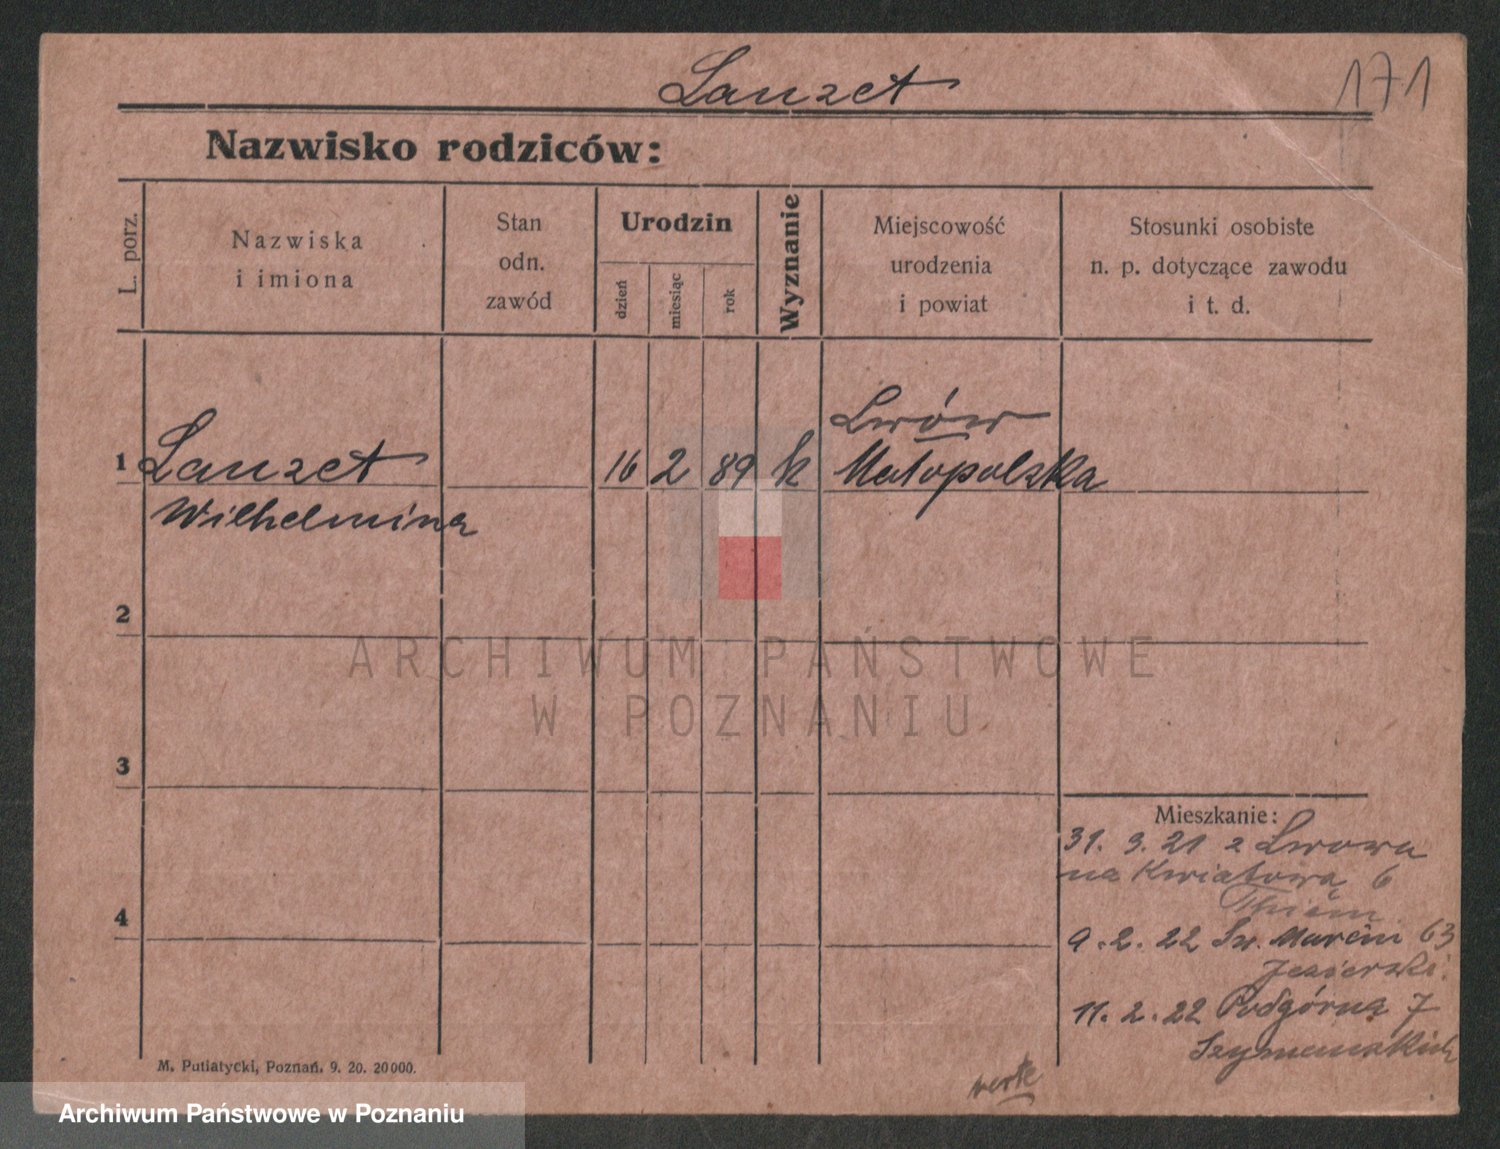 Lanzet
171
Nazwisko rodziców:
L. porz.
Nazwiska
i imiona
Stan
odn.
zawód
Urodzin
dzień
miesiąc
rok
Wyznanie
Miejscowość
urodzenia
i powiat
Stosunki osobiste
n. p. dotyczące zawodu
i t. d.
1 Lanzet 16 2 89 k Lwów
Małopolska
Wilhelmina
2
3
4
ARCHIWUM PAŃSTWOWE
W POZNANIU
Mieszkanie:
31. 3. 21 z Lwowa
na Kwiatową 6
Thiem
9. 2. 22 Św. Marcin 63
Jezierski
11. 2. 22 Podgórna 7
M. Putiatycki, Poznań. 9. 20. 20000.
Archiwum Państwowe w Poznaniu